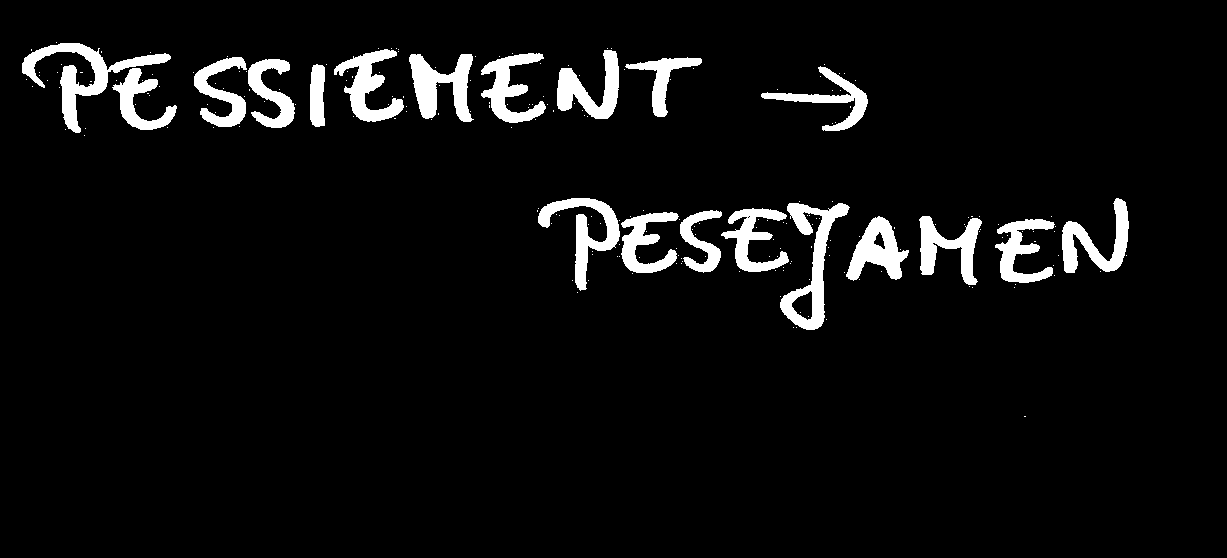 PESSIEMENT →
PESEJAMEN